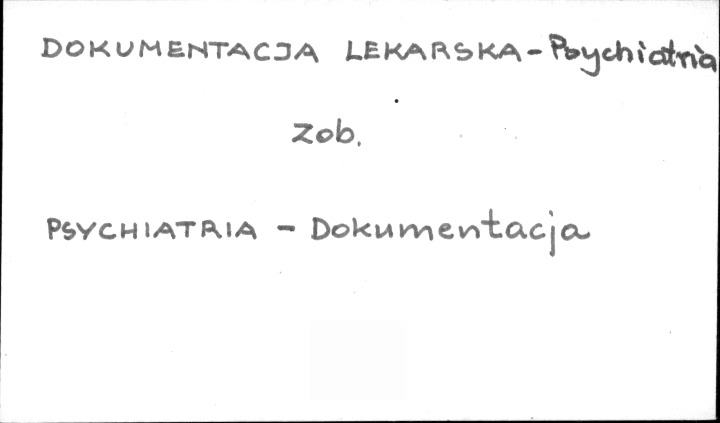 DOKUMENTACJA LEKARSKA - Psychiatria
Zob.
PSYCHIATRIA - Dokumentacja